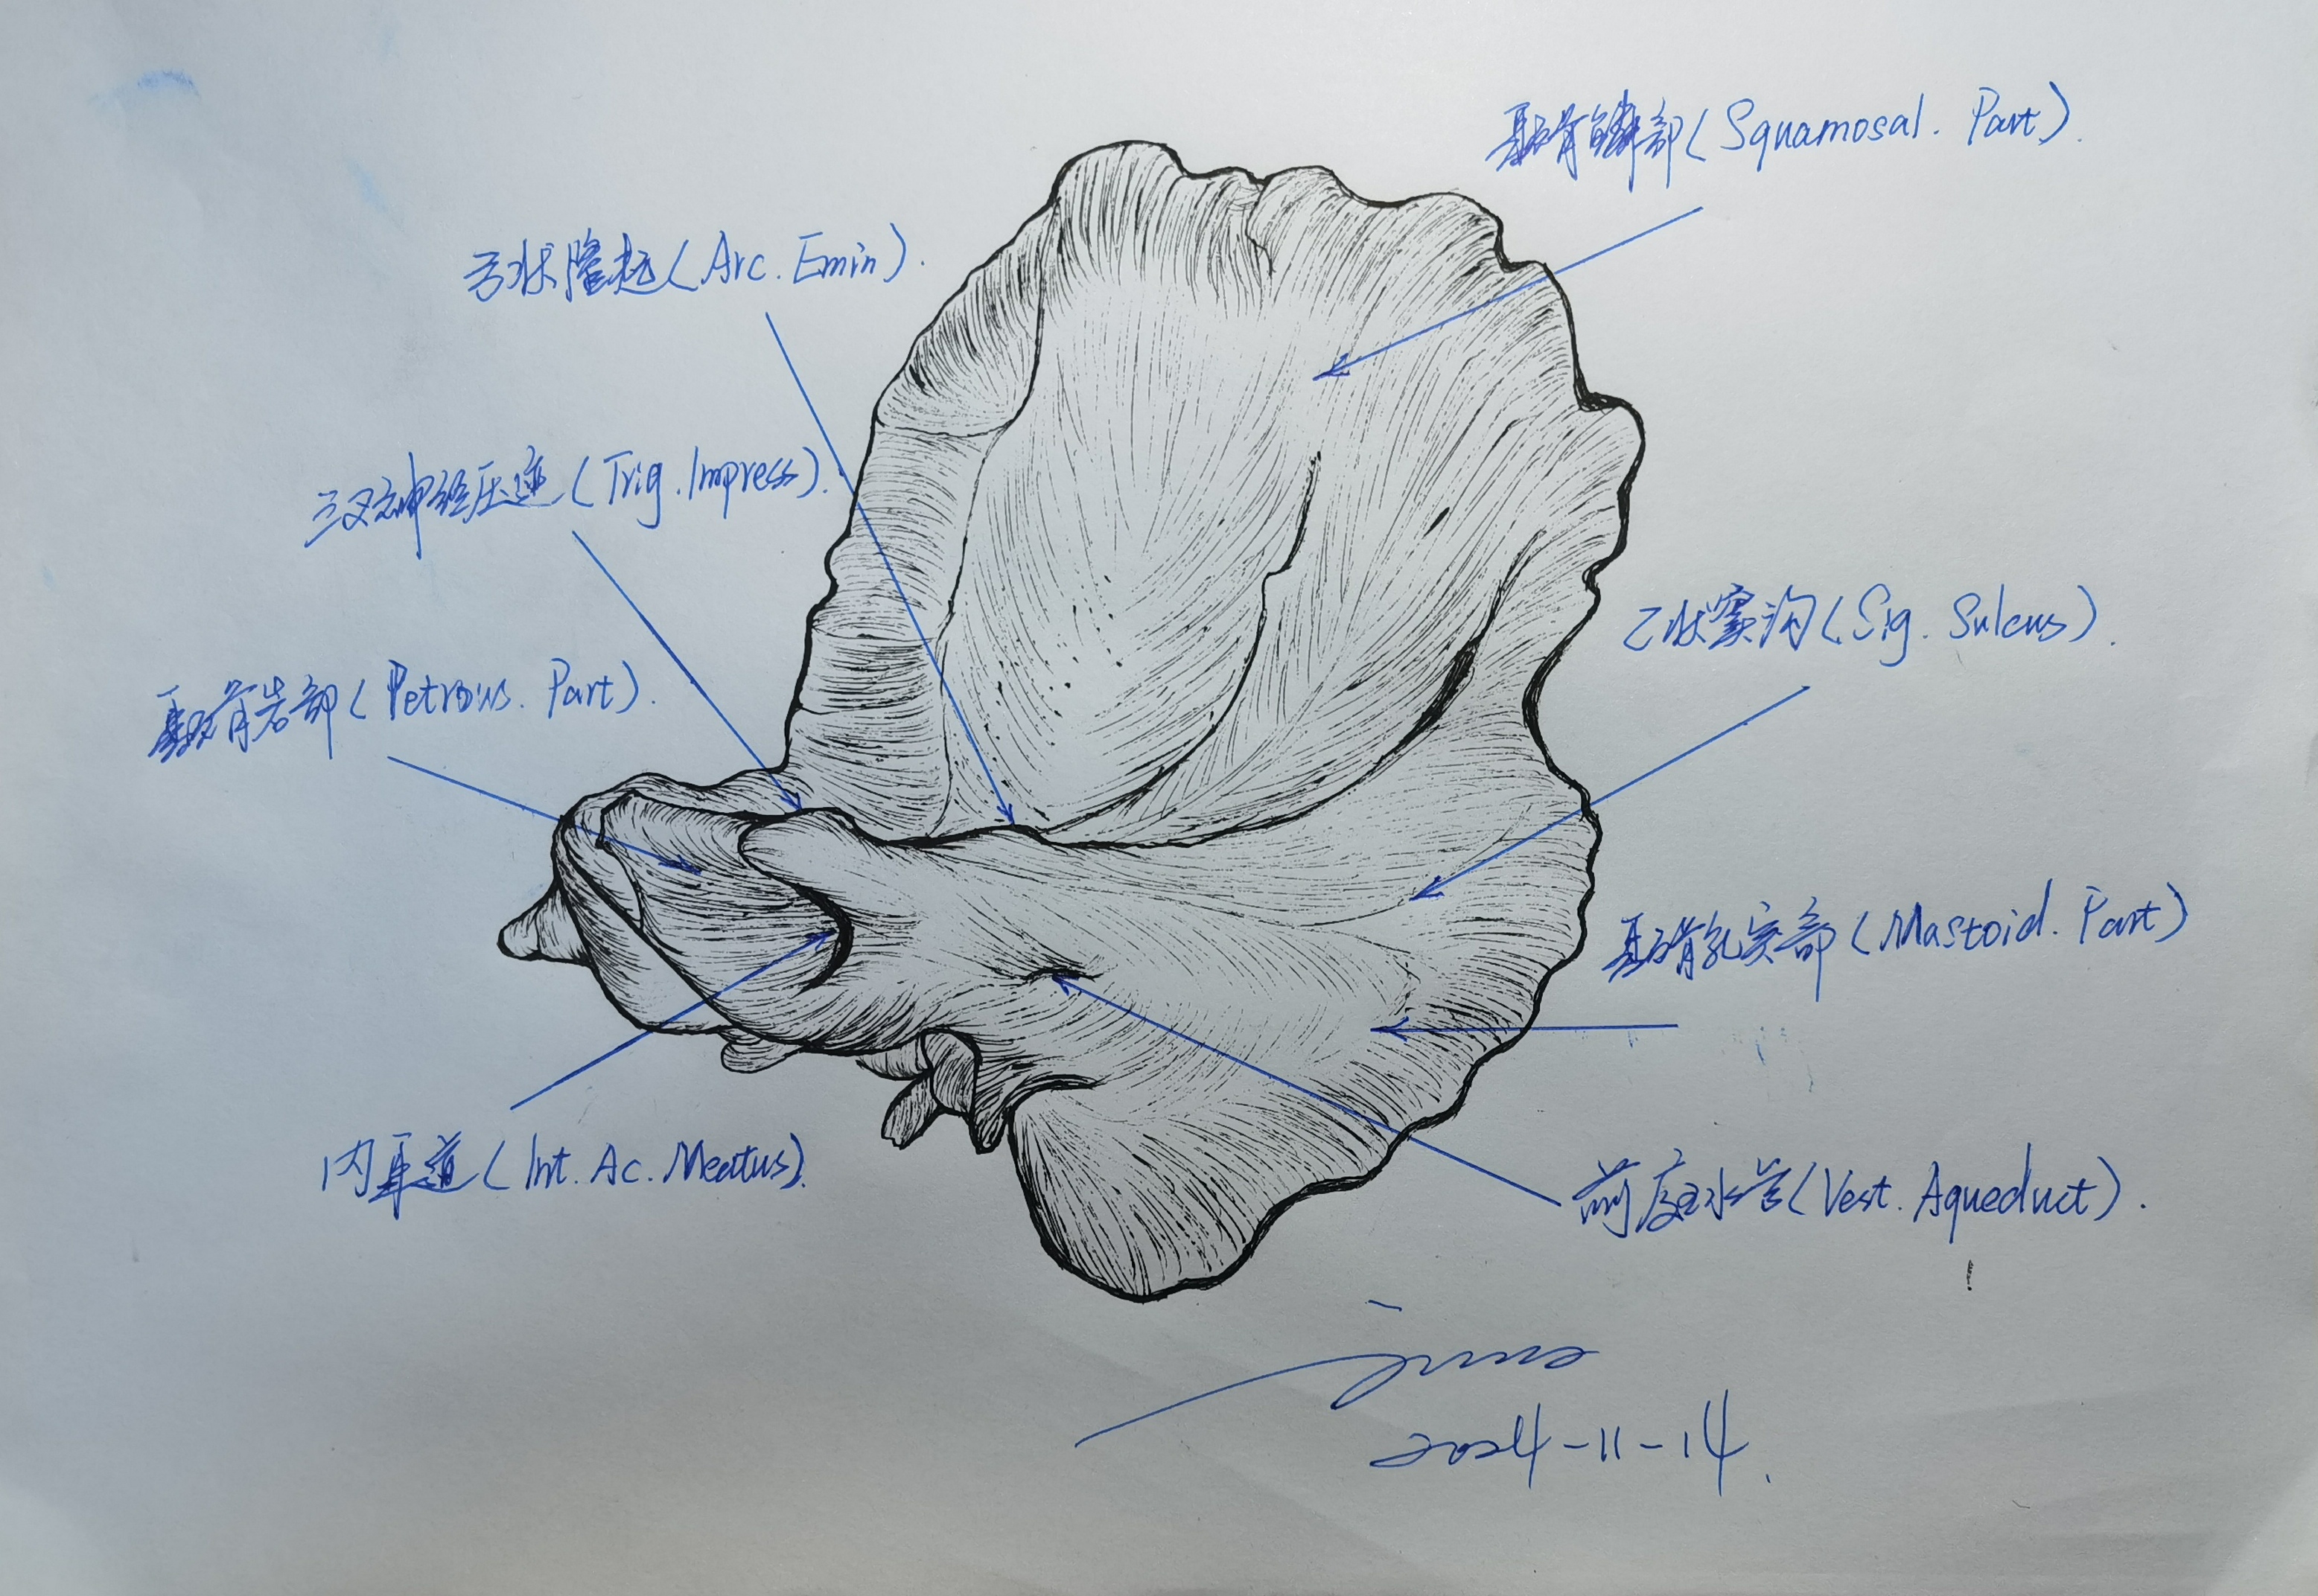 颞骨鳞部(Squamosal. Part).
弓状隆起(Arc. Emin).
三叉神经压迹(Trig. Impress).
乙状窦沟(Sig. Sulcus).
颞骨岩部(Petrous. Part).
颞骨乳突部(Mastoid. Part)
内耳道(Int. Ac. Meatus).
前庭水管(Vest. Aqueduct).
2024-11-14.